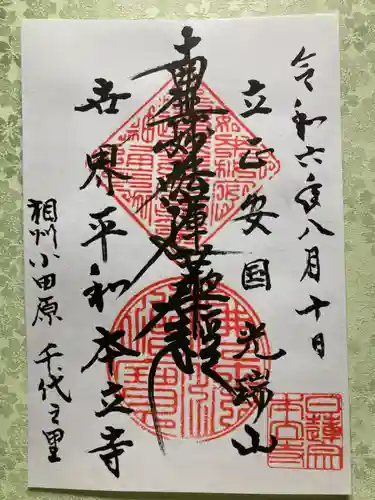 令和六年八月十日
立正安国 光瑞山
南無妙法蓮華経
世界平和 本立寺
相州小田原 千代之里